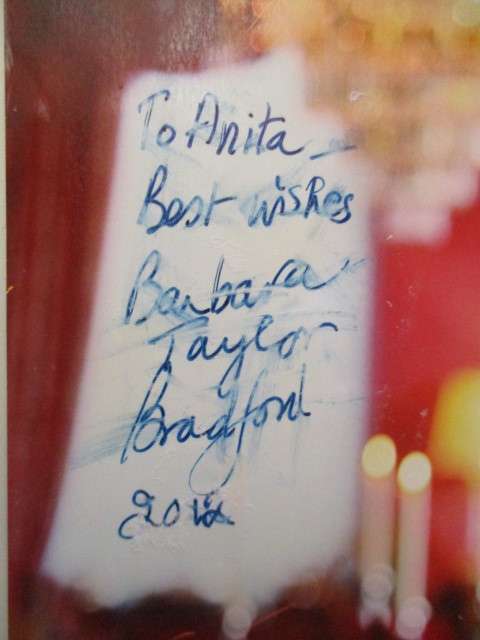 To Anita
Best wishes
Barbara
Taylor
Bradford
2012